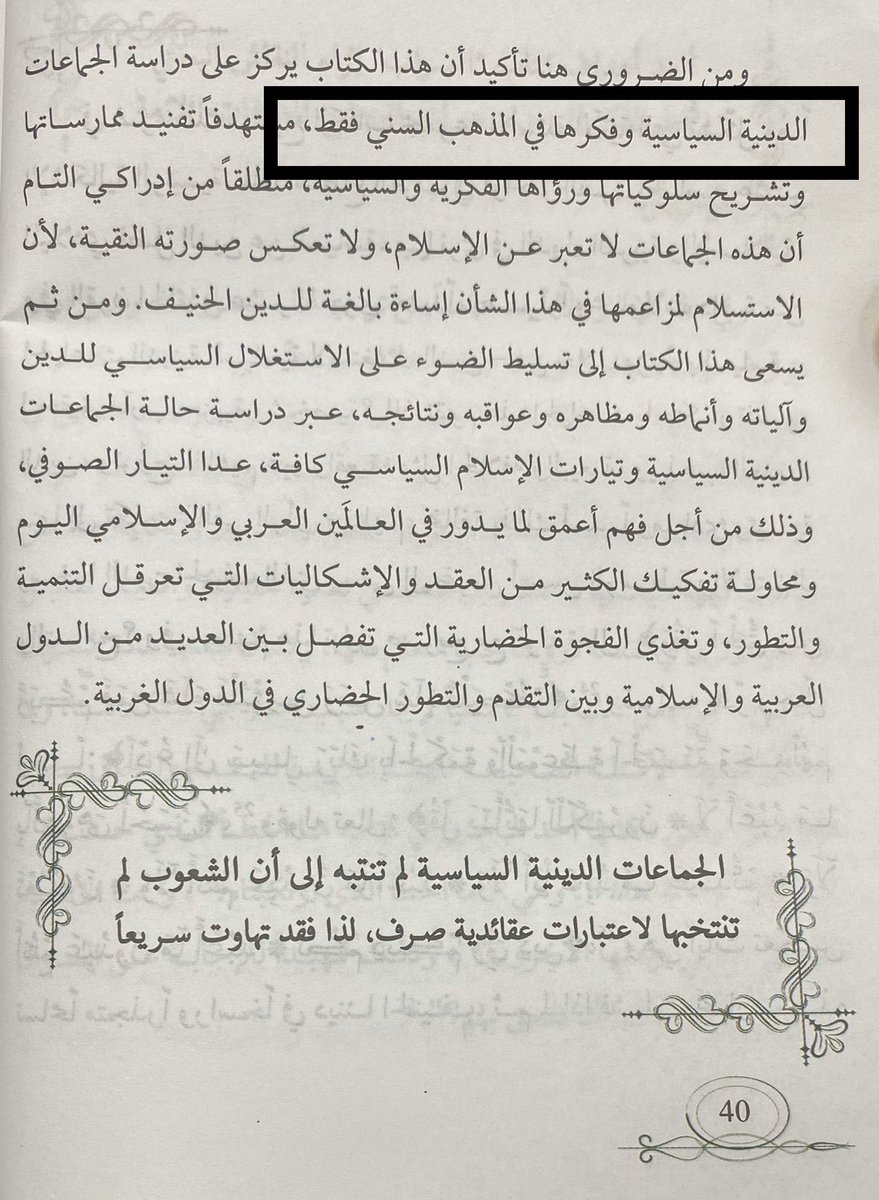 ومن الضروري هنا تأكيد أن هذا الكتاب يركز على دراسة الجماعات
الدينية السياسية وفكرها في المذهب السني فقط، مستهدفاً تفنيد ممارساتها
وتشريح سلوكياتها ورؤاها الفكرية والسياسية، منطلقاً من إدراكي التام
أن هذه الجماعات لا تعبر عن الإسلام، ولا تعكس صورته النقية، لأن
الاستسلام لمزاعمها في هذا الشأن إساءة بالغة للدين الحنيف. ومن ثم
يسعى هذا الكتاب إلى تسليط الضوء على الاستغلال السياسي للدين
وآلياته وأنماطه ومظاهره وعواقبه ونتائجه، عبر دراسة حالة الجماعات
الدينية السياسية وتيارات الإسلام السياسي كافة، عدا التيار الصوفي،
وذلك من أجل فهم أعمق لما يدور في العالَمين العربي والإسلامي اليوم
ومحاولة تفكيك الكثير من العقد والإشكاليات التي تعرقل التنمية
والتطور، وتغذي الفجوة الحضارية التي تفصل بين العديد من الدول
العربية والإسلامية وبين التقدم والتطور الحضاري في الدول الغربية.
الجماعات الدينية السياسية لم تنتبه إلى أن الشعوب لم
تنتخبها لاعتبارات عقائدية صرف، لذا فقد تهاوت سريعاً
40